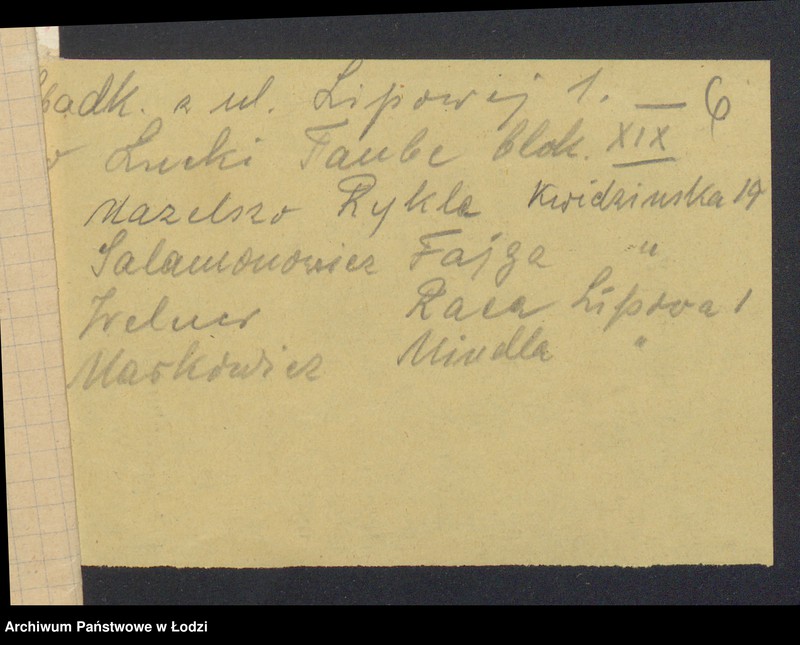 adk. z ul. Lipowej 1. — 6
Lucki Taube blok. XIX
Mazelszo Rykla Kwidzinska 19
Salamonowicz Fajga "
Welner Raca Lipowa 1
Markowicz Mindla "
Archiwum Państwowe w Łodzi